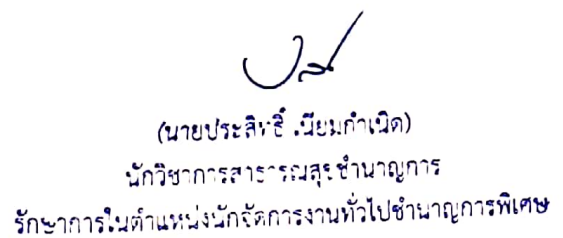 (นายประสิทธิ์ เนียมกำเนิด)
นักวิชาการสาธารณสุขชำนาญการ
รักษาการในตำแหน่งนักจัดการงานทั่วไปชำนาญการพิเศษ